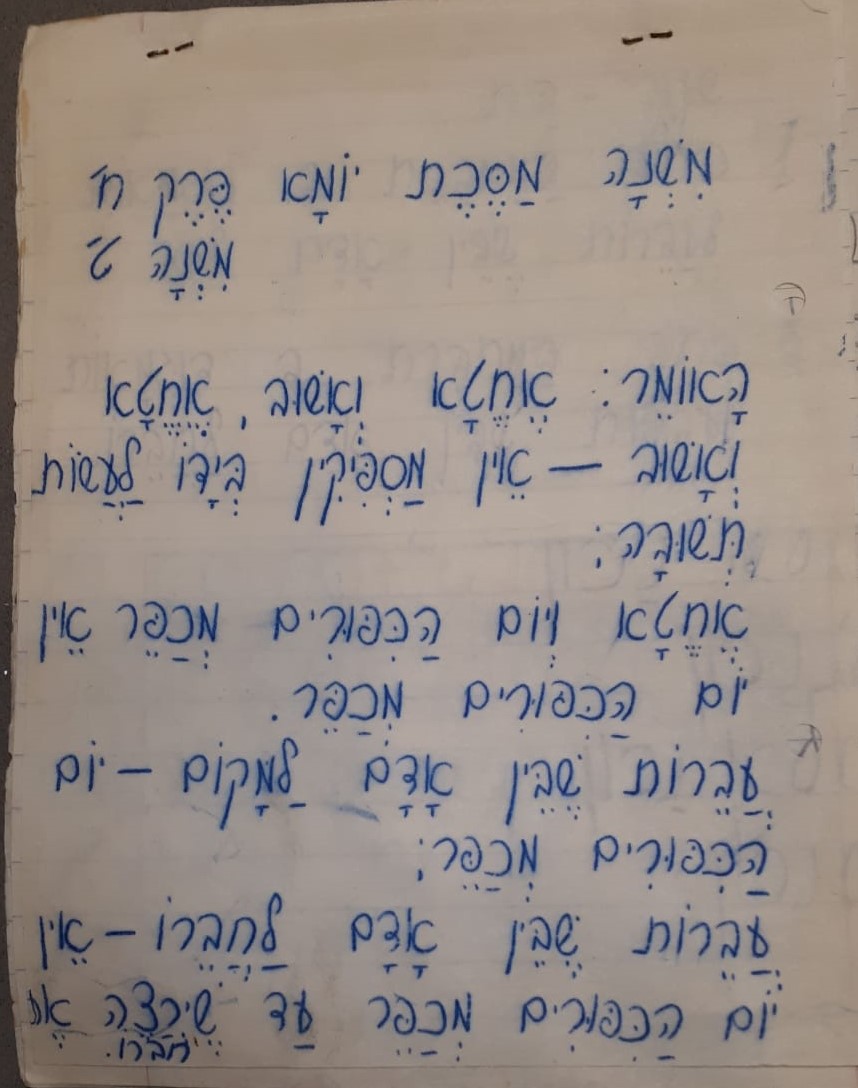 מִשְׁנָה מַסֶּכֶת יוֹמָא פֶּרֶק ח'
מִשְׁנָה ט'
הָאוֹמֵר: אֶחֱטָא וְאָשׁוּב, אֶחֱטָא
וְאָשׁוּב — אֵין מַסְפִּיקִין בְּיָדוֹ לַעֲשׂוֹת
תְּשׁוּבָה;
אֶחֱטָא וְיוֹם הַכִּפּוּרִים מְכַפֵּר אֵין
יוֹם הַכִּפּוּרִים מְכַפֵּר.
עֲבֵרוֹת שֶׁבֵּין אָדָם לַמָּקוֹם – יוֹם
הַכִּפּוּרִים מְכַפֵּר;
עֲבֵרוֹת שֶׁבֵּין אָדָם לַחֲבֵרוֹ – אֵין
יוֹם הַכִּפּוּרִים מְכַפֵּר עַד שֶׁיְּרַצֶּה אֶת
חברו.